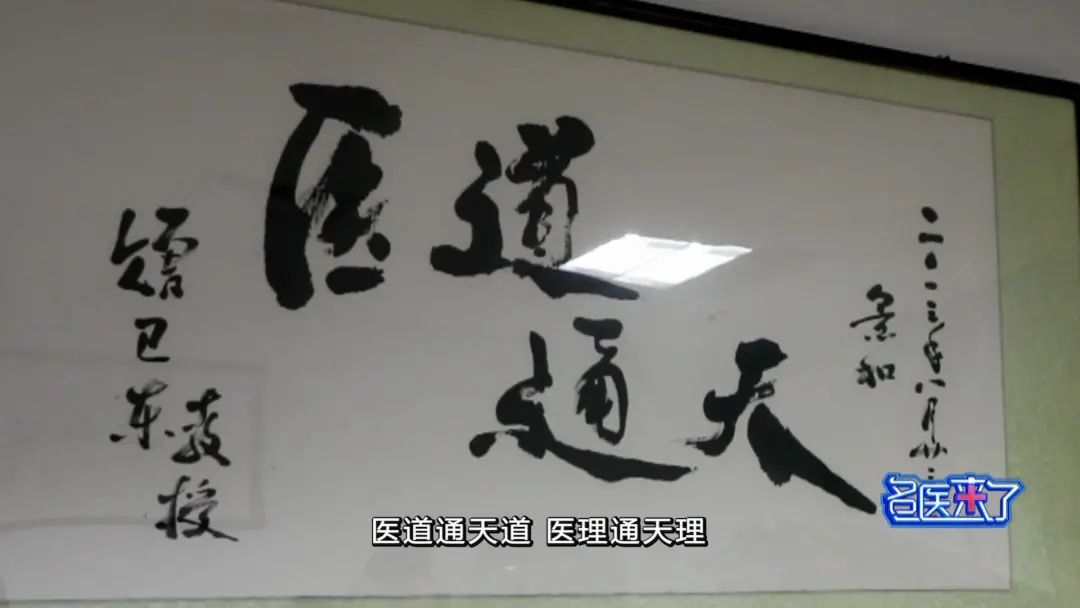 赠卫东教授
医道
通天
景和
二〇一三年八月廿
名医来了
医道通天道 医理通天理